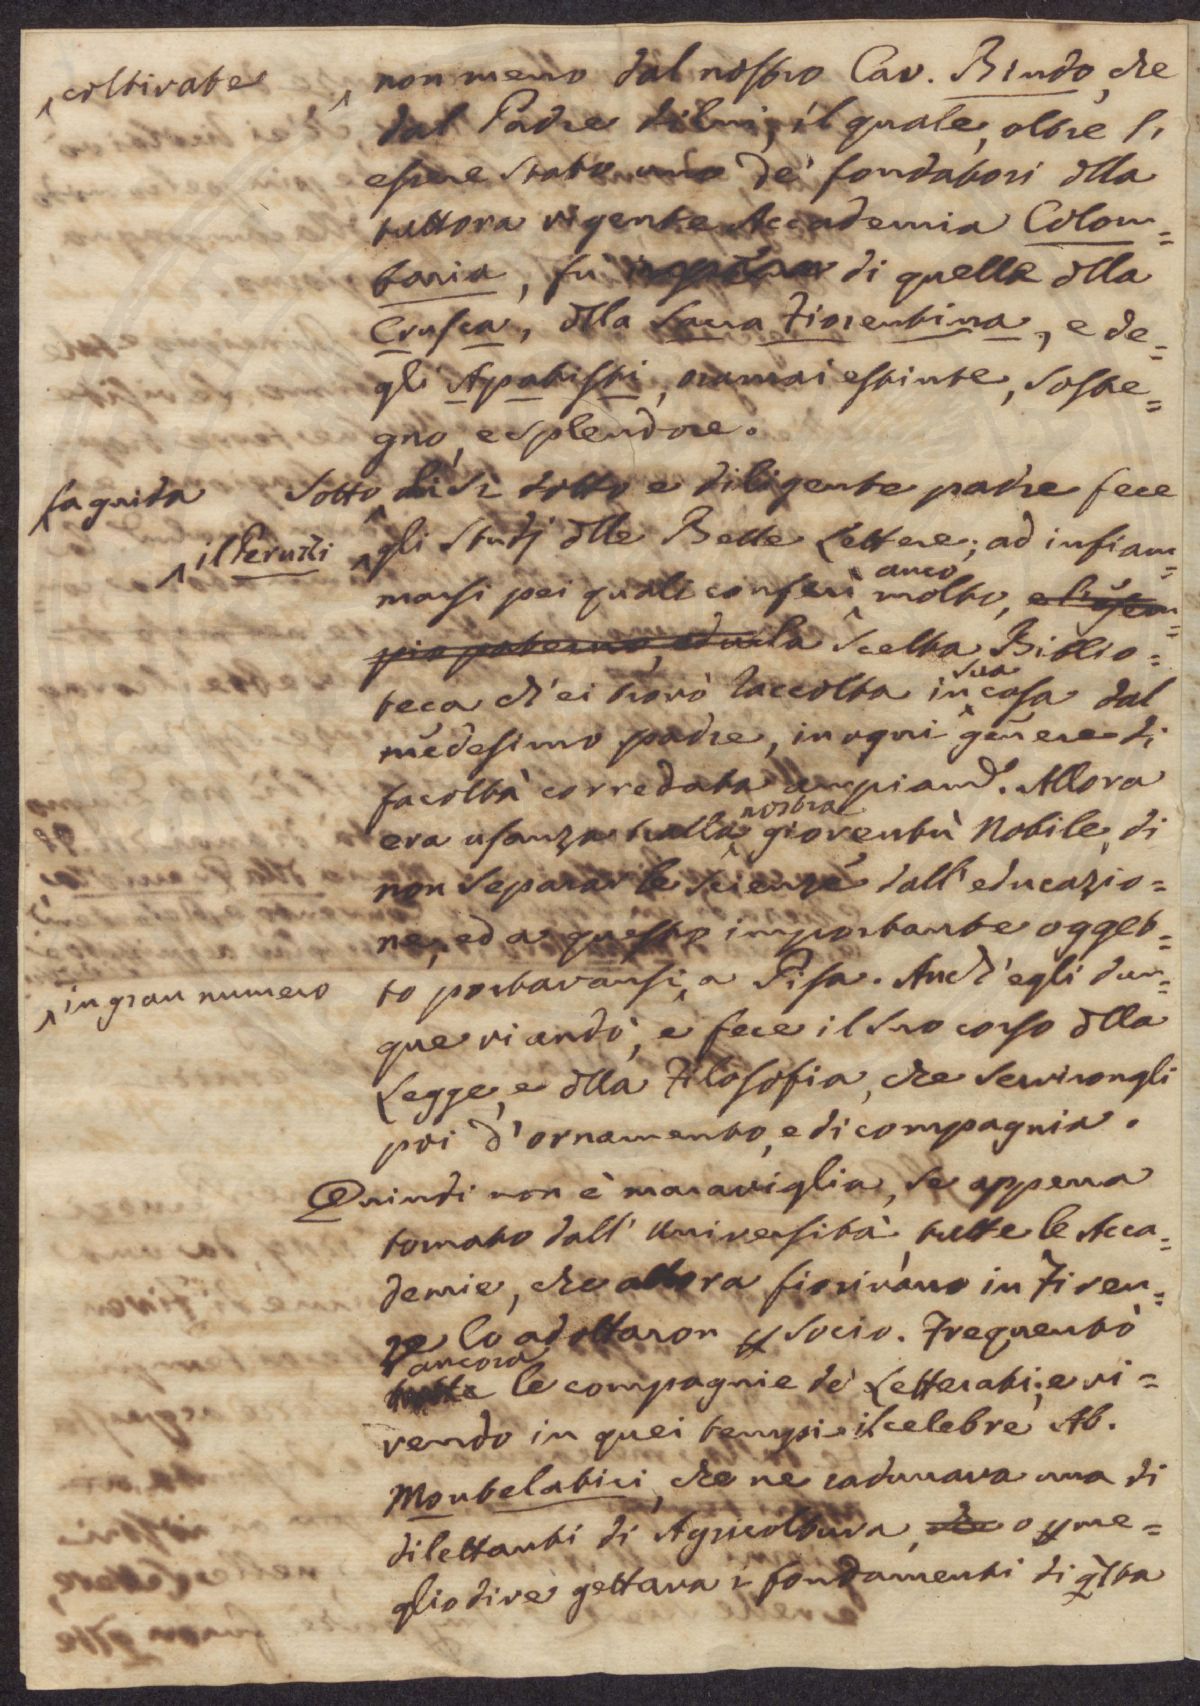 coltivate
non meno dal nostro Cav. Bindo, che
dal Padre di lui; il quale, oltre l'
essere stato uno de' fondatori dlla
tuttora vigente Accademia Colom=
baria, fu di quelle dlla
Crusca, dlla Sacra Fiorentina, e de=
gli Apatisti, oramai estinte, soste=
gno, e splendore.
la guida
Sotto di sì dotto e diligente padre fece
il Peruzzi
gli Studj dlle Belle Lettere; ad infiam=
anco
marsi pei quali conferì molto, e l'esem=
pio paterno, ed una la scelta Biblio=
sua
teca ch'ei trovò raccolta in casa dal
medesimo padre, in ogni genere di
facoltà corredata ampiamte. Allora
nostra
era usanza tralla gioventù Nobile, di
non separar le scienze dall'educazio=
ne, ed a questo importante ogget=
in gran numero
to portavansi, a Pisa. Anch'egli dun=
que vi andò, e fece il suo corso dlla
Legge, e dlla Filosofia, che servirongli
poi d'ornamento, e di compagnia.
Quindi non è maraviglia, se appena
tornato dall'Università, tutte le Acca=
demie, che allora fiorivano in Firen=
ze lo adottaron p socio. Frequentò
ancora
tutte le compagnie de' Letterati; e vi=
vendo in quei tempi il celebre Ab.
Montelatici, che ne radunava una di
dilettanti di Agricoltura, che o p me=
glio dire gettava i fondamenti di qlta